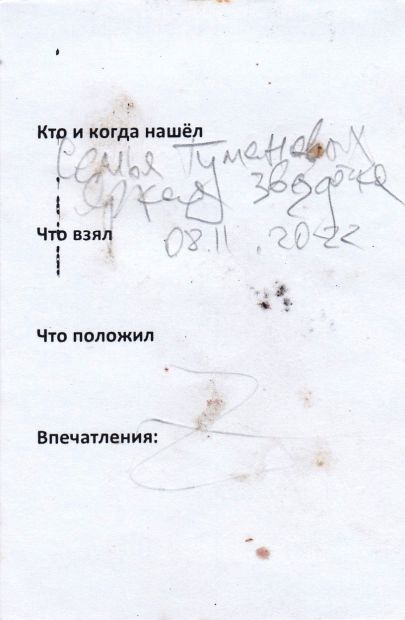 Кто и когда нашёл
Семья Тумановых
Яркая звёздочка
Что взял
08.11.2022
Что положил
Впечатления: